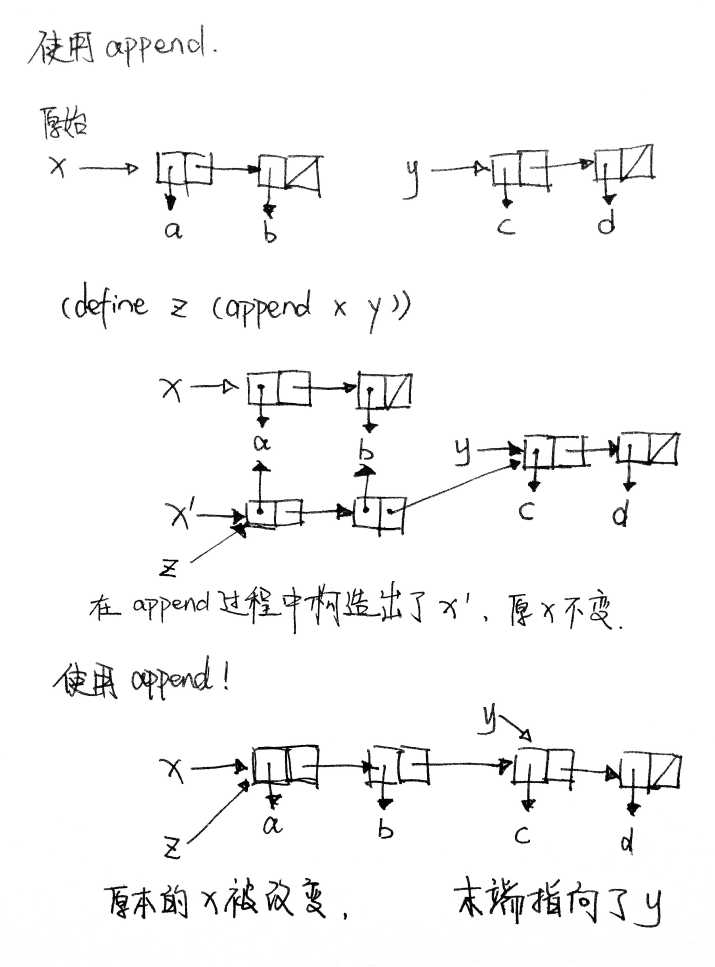 使用 append.
原始
x y
a b c d
(define z (append x y))
x
a b y
x' c d
z
在 append 过程中构造出了 x', 原 x 不变.
使用 append!
y
x
a b c d
z
原本的 x 被改变, 末端指向了 y